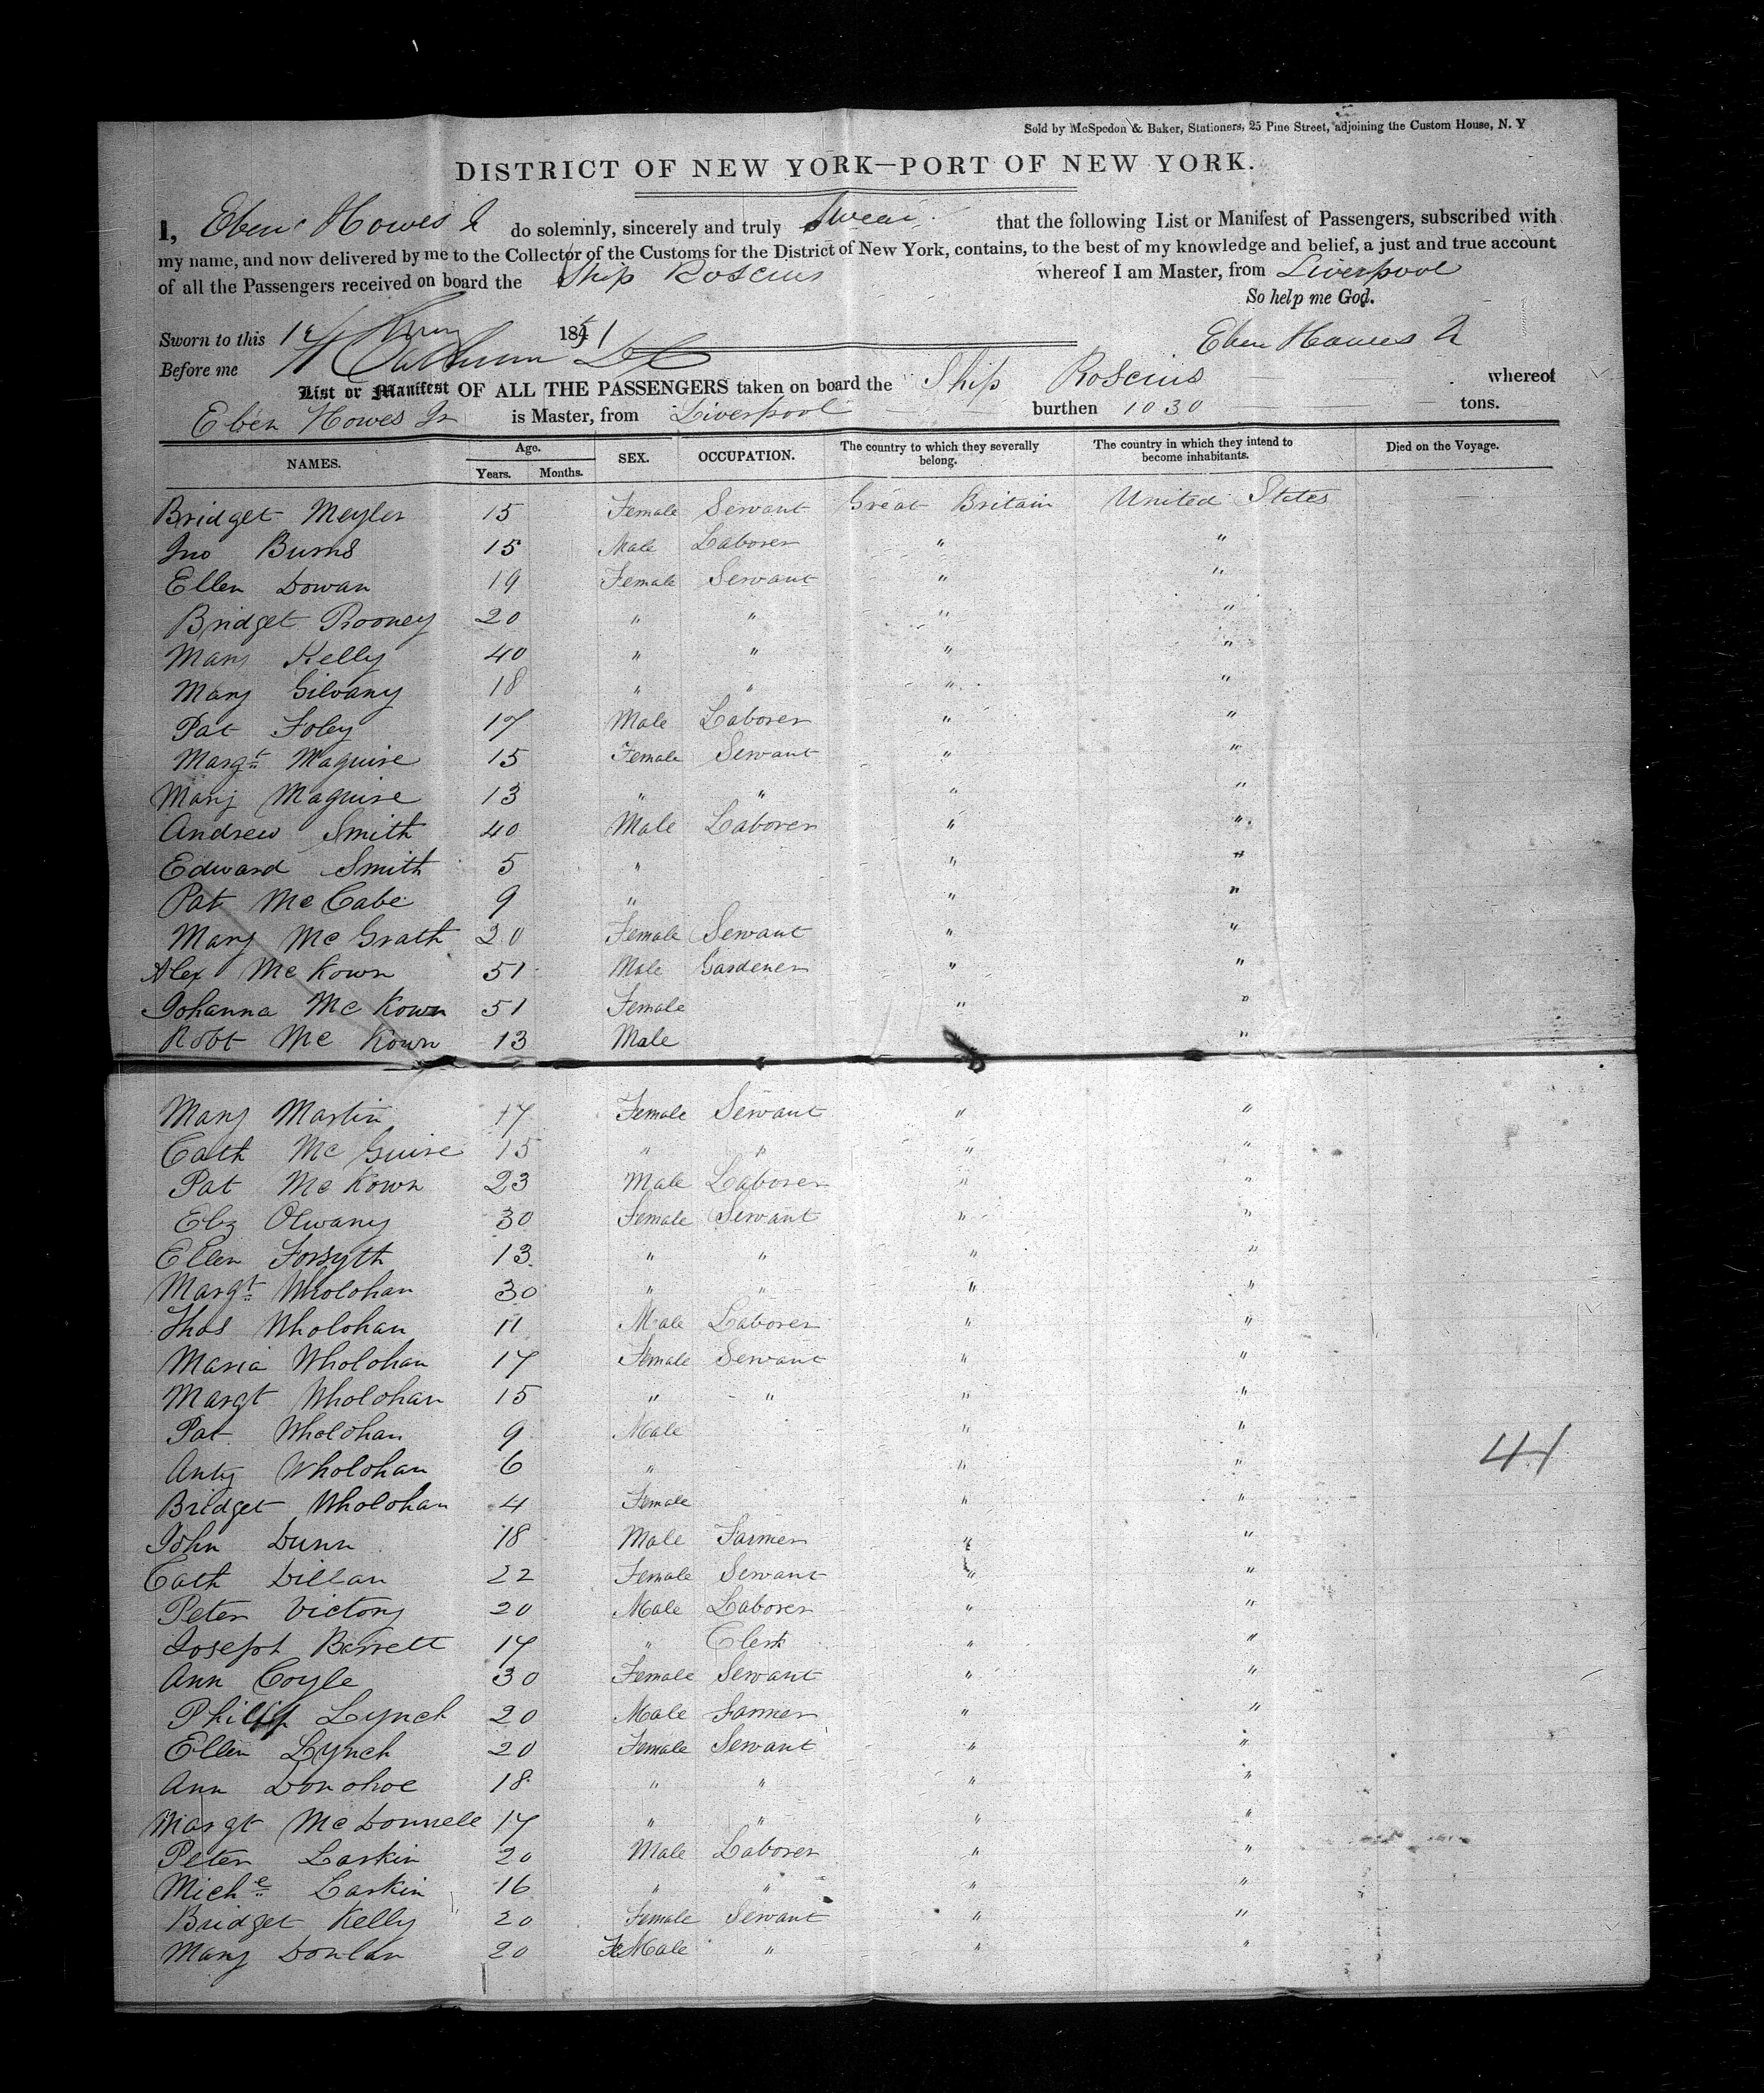 Sold by McSpedon & Baker, Stationers, 25 Pine Street, adjoining the Custom House, N. Y
DISTRICT OF NEW YORK—PORT OF NEW YORK.
I, Eben Howes Jr do solemnly, sincerely and truly Swear that the following List or Manifest of Passengers, subscribed with
my name, and now delivered by me to the Collector of the Customs for the District of New York, contains, to the best of my knowledge and belief, a just and true account
of all the Passengers received on board the Ship Roscius whereof I am Master, from Liverpool
So help me God.
Sworn to this 1851
Eben Howes Jr
Before me
List or Manifest OF ALL THE PASSENGERS taken on board the Ship Roscius whereof
Eben Howes Jr is Master, from Liverpool burthen 1030 tons.
NAMES. Age. Years. Months. SEX. OCCUPATION. The country to which they severally belong. The country in which they intend to become inhabitants. Died on the Voyage.
Bridget Meyler 15 Female Servant Great Britain United States
Jno Burns 15 Male Laborer " "
Ellen Dowan 19 Female Servant " "
Bridget Rooney 20 " " " "
Mary Kelly 40 " " " "
Mary Gilvany 18 " " " "
Pat Foley 17 Male Laborer " "
Margt Maguire 15 Female Servant " "
Mary Maguire 13 " " " "
Andrew Smith 40 Male Laborer " "
Edward Smith 5 " " "
Pat McCabe 9 " " "
Mary McGrath 20 Female Servant " "
Alex McKown 51 Male Gardener " "
Johanna McKown 51 Female " "
Robt McKown 13 Male "
Mary Martin 17 Female Servant " "
Cath McGuire 15 " " " "
Pat McKown 23 Male Laborer " "
Elz Olwany 30 Female Servant " "
Ellen Forsyth 13 " " " "
Margt Wholohan 30 " " " "
Thos Wholohan 11 Male Laborer " "
Maria Wholohan 17 Female Servant " "
Margt Wholohan 15 " " " "
Pat Wholohan 9 Male " "
Anty Wholohan 6 " " "
Bridget Wholohan 4 Female " "
John Dunn 18 Male Farmer " "
Cath Dillan 22 Female Servant " "
Peter Victory 20 Male Laborer " "
Joseph Barrett 17 " Clerk " "
Ann Coyle 30 Female Servant " "
Philip Lynch 20 Male Farmer " "
Ellen Lynch 20 Female Servant " "
Ann Donohoe 18 " " " "
Margt McDonnell 17 " " " "
Peter Larkin 20 Male Laborer " "
Michl Larkin 16 " " " "
Bridget Kelly 20 Female Servant " "
Mary Donlan 20 FeMale " " "
41